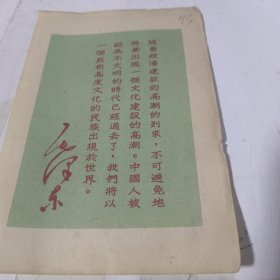 隨着經濟建設的高潮的到來，不可避免地
將要出現一個文化建設的高潮。中國人被
認爲不文明的時代已經過去了，我們將以
一個具有高度文化的民族出現於世界。
毛澤東